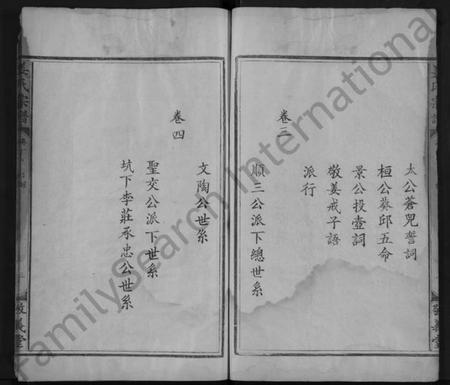 太公蒼兕誓詞
桓公葵邱五命
景公投壺詞
敬姜戒子語
派行
卷三
順三公派下總世系
卷四
文陶公世系
聖交公派下世系
坑下李莊承忠公世系
氏宗譜
敬義堂
FamilySearch International